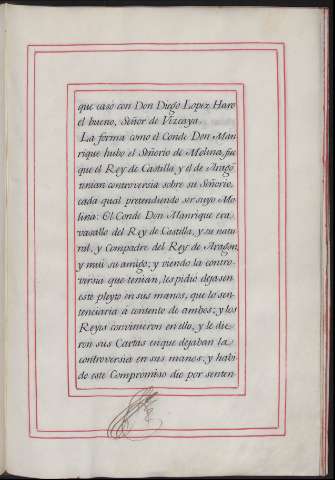 que casó con Don Diego Lopez Haro
el bueno, Señor de Vizcaya.
La forma como el Conde Don Man
rique hubo el Señorio de Molina, fue
que el Rey de Castilla, y el de Aragō
tenian controversia sobre su Señorio,
cada qual pretendiendo ser suyo Mo
lina: El Conde Don Manrique era
vasallo del Rey de Castilla, y su natu
ral, y Compadre del Rey de Aragon,
y mui su amigo; y viendo la contro-
versia que tenian, les pidió dejasen
este pleyto en sus manos, que lo sen-
tenciaria á contento de ambos; y los
Reyes convinieron en ello, y le die-
ron sus Cartas en que dejaban la
controversia en sus manos: y habi
do este Compromiso dio por senten